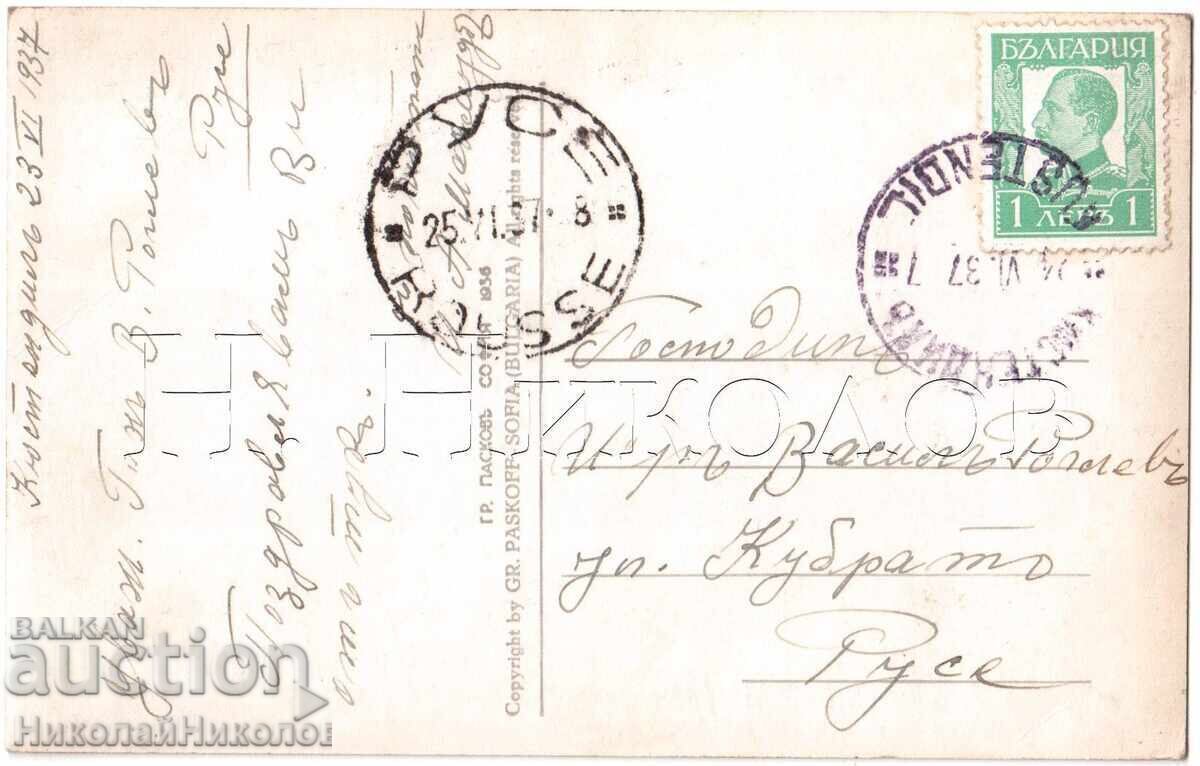 Кюстендилъ 23 VI 1937
Уваж. Г-нъ В. Роглевъ
Русе
Поздравявамъ Ви
отъ
ГР. ПАСКОВЪ СОФИЯ 1936
Copyright by GR. PASKOFF SOFIA (BULGARIA) All rights
РУСЕ
25.VI.37. 8
RUSSE
БЪЛГАРИЯ
1 ЛЕВЪ 1
KUSTENDIL
24 VI.37 7
КЮСТЕНДИЛЪ
Господинъ
Василъ Роглевъ
ул. Кубратъ
Русе
Н. НИКОЛОВ
BALKAN
auction
НиколайНиколов